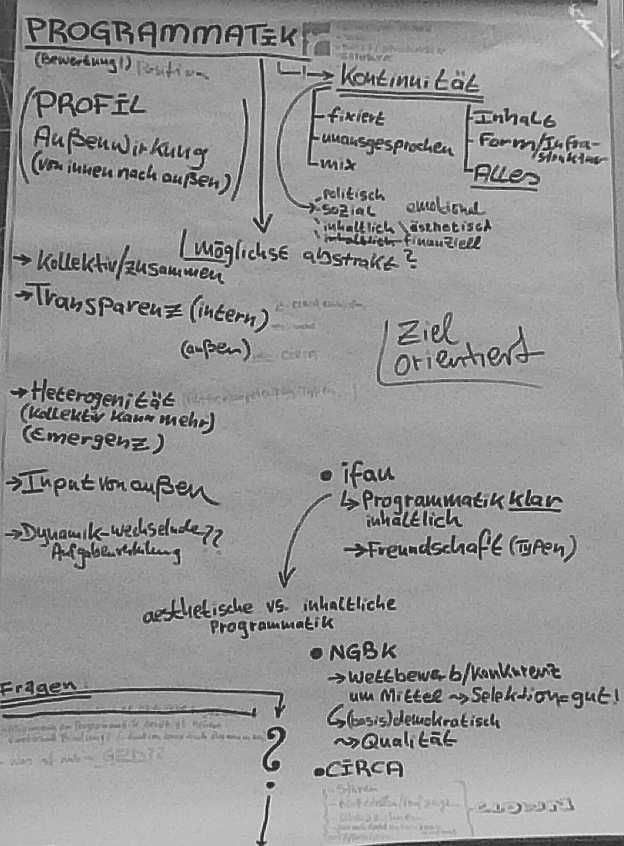 PROGRAMMATIK
(Bewertung!)
(PROFIL
Außenwirkung
(von innen nach außen))
→ Kontinuität
- fixiert
- unausgesprochen
- mix
- Inhalt
- Form/Infra-
struktur
- Alles
politisch
sozial emotional
inhaltlich ästhetisch
inhaltlich finanziell
möglichst abstrakt?
→ Kollektiv/zusammen
→ Transparenz (intern)
(außen)
Ziel
orientiert
→ Heterogenität
(Kollektiv kann mehr)
(Emergenz)
→ Input von außen
→ Dynamik-wechselnde??
Aufgabenverteilung
• ifau
↳ Programmatik klar
inhaltlich
→ Freundschaft (Typen)
aesthetische vs. inhaltliche
Programmatik
• NGBK
→ Wettbewerb/Konkurrenz
um Mittel ~> Selektion=gut!
↳ (basis)demokratisch
~> Qualität
• CIRCA
Fragen
?